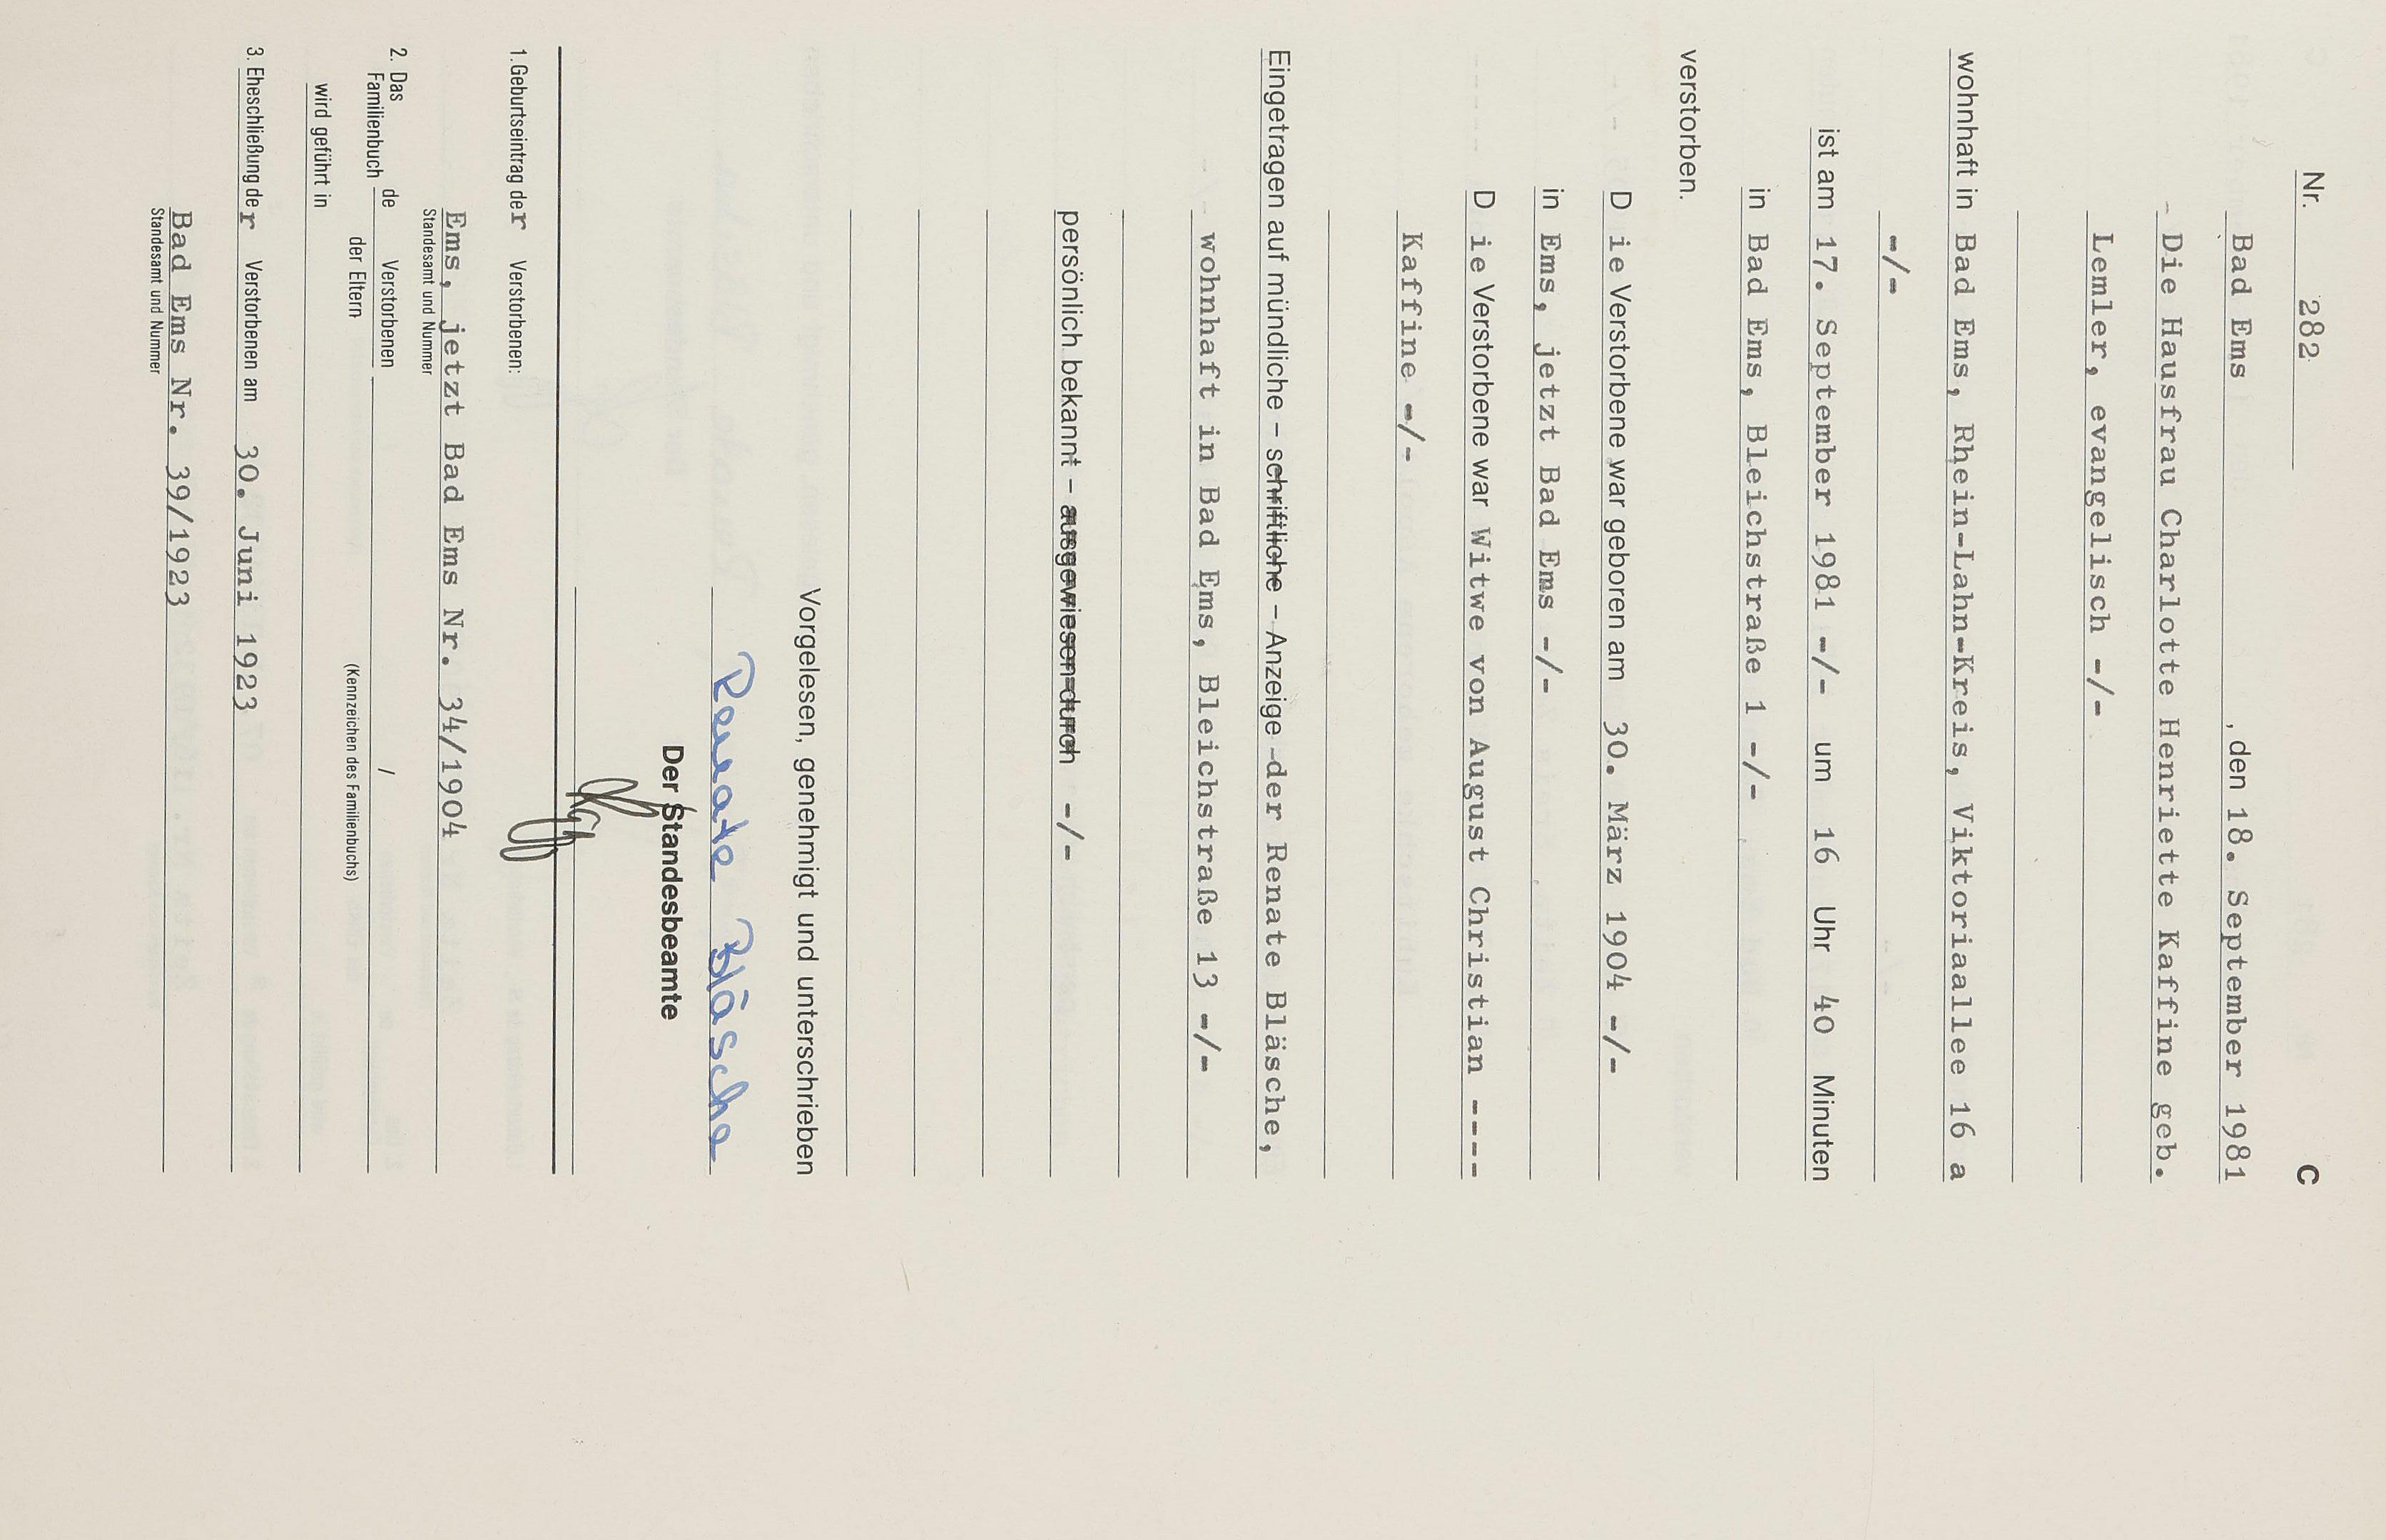 Nr. 282 C
Bad Ems , den 18. September 1981
Die Hausfrau Charlotte Henriette Kaffine geb.
Lemler, evangelisch -/-
wohnhaft in Bad Ems, Rhein-Lahn-Kreis, Viktoriaallee 16 a
-/-
ist am 17. September 1981 -/- um 16 Uhr 40 Minuten
in Bad Ems, Bleichstraße 1 -/-
verstorben.
D ie Verstorbene war geboren am 30. März 1904 -/-
in Ems, jetzt Bad Ems -/-
D ie Verstorbene war Witwe von August Christian ----
Kaffine -/-
Eingetragen auf mündliche – schriftliche – Anzeige – der Renate Bläsche,
wohnhaft in Bad Ems, Bleichstraße 13 -/-
persönlich bekannt – ausgewiesen durch -/-
Vorgelesen, genehmigt und unterschrieben
Renate Bläsche
Der Standesbeamte
1. Geburtseintrag der Verstorbenen:
Ems, jetzt Bad Ems Nr. 34/1904
Standesamt und Nummer
2. Das Familienbuch de Verstorbenen / der Eltern
wird geführt in (Kennzeichen des Familienbuchs)
3. Eheschließung der Verstorbenen am 30. Juni 1923
Bad Ems Nr. 39/1923
Standesamt und Nummer